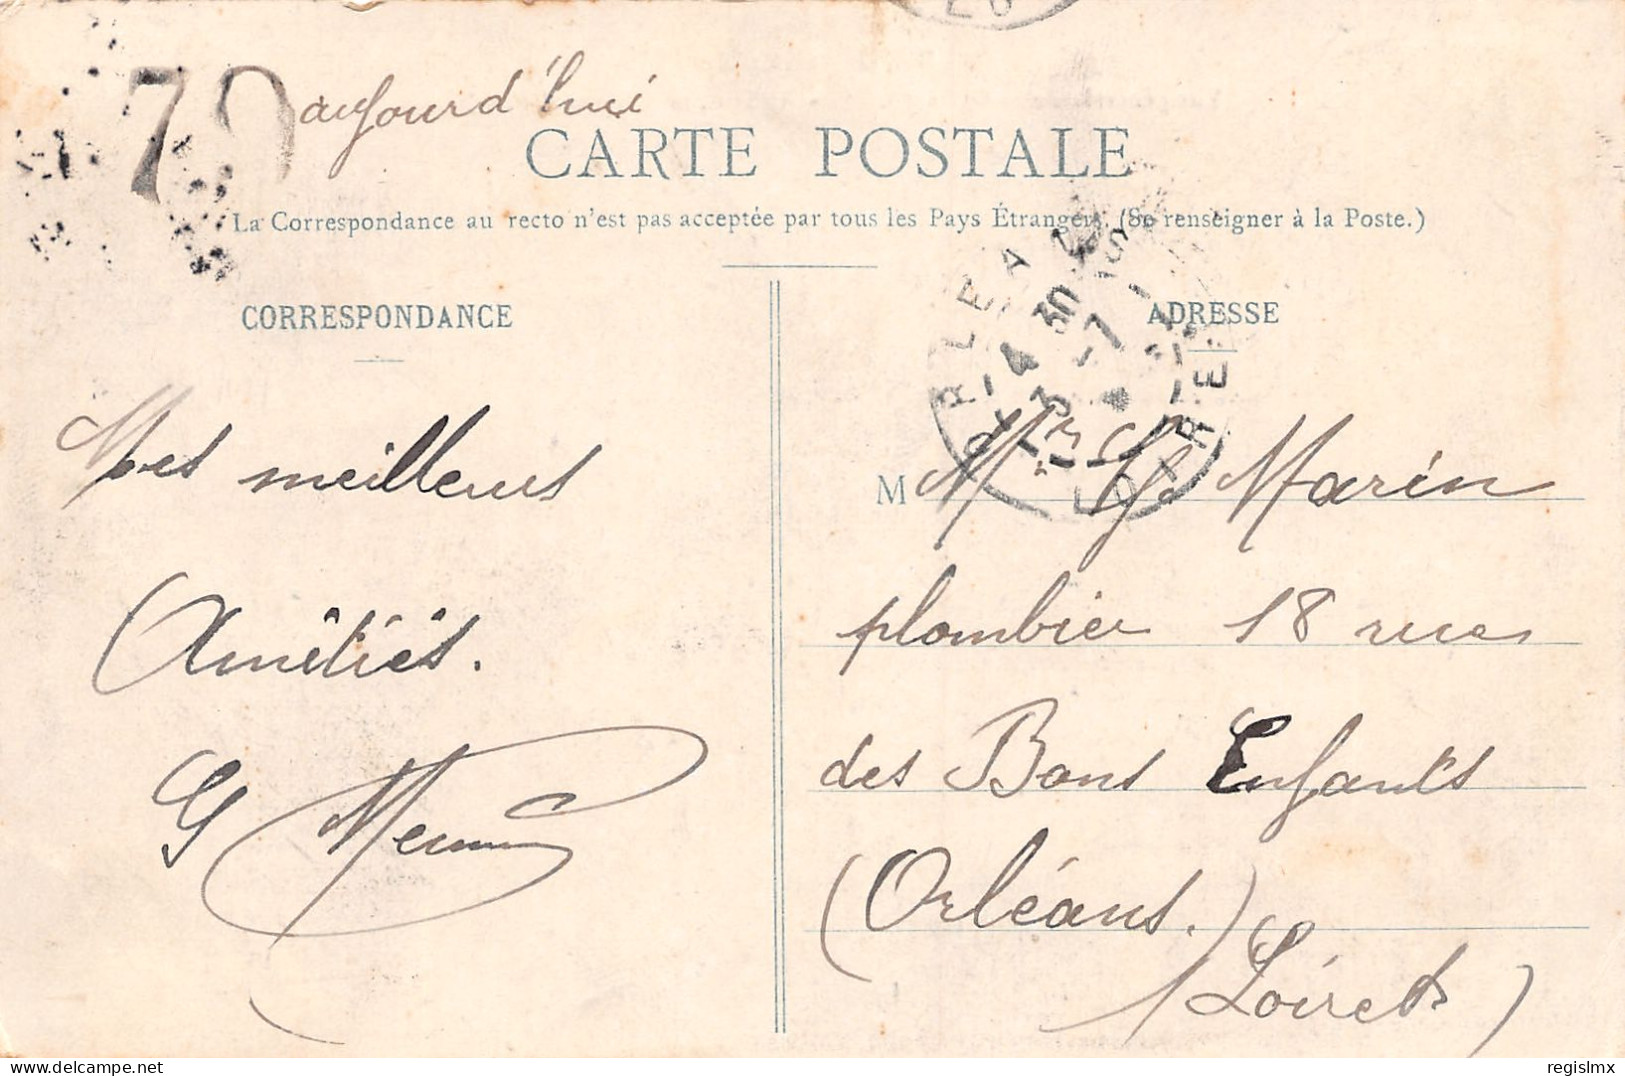 70
aujourd'hui
CARTE POSTALE
La Correspondance au recto n'est pas acceptée par tous les Pays Étrangers. (Se renseigner à la Poste.)
CORRESPONDANCE
Mes meilleurs
Amitiés.
G
ADRESSE
M Mr G. Marin
plombier 18 rue
des Bons Enfants
(Orléans.)
(Loiret)
ORLEANS
LOIRET
regislmx